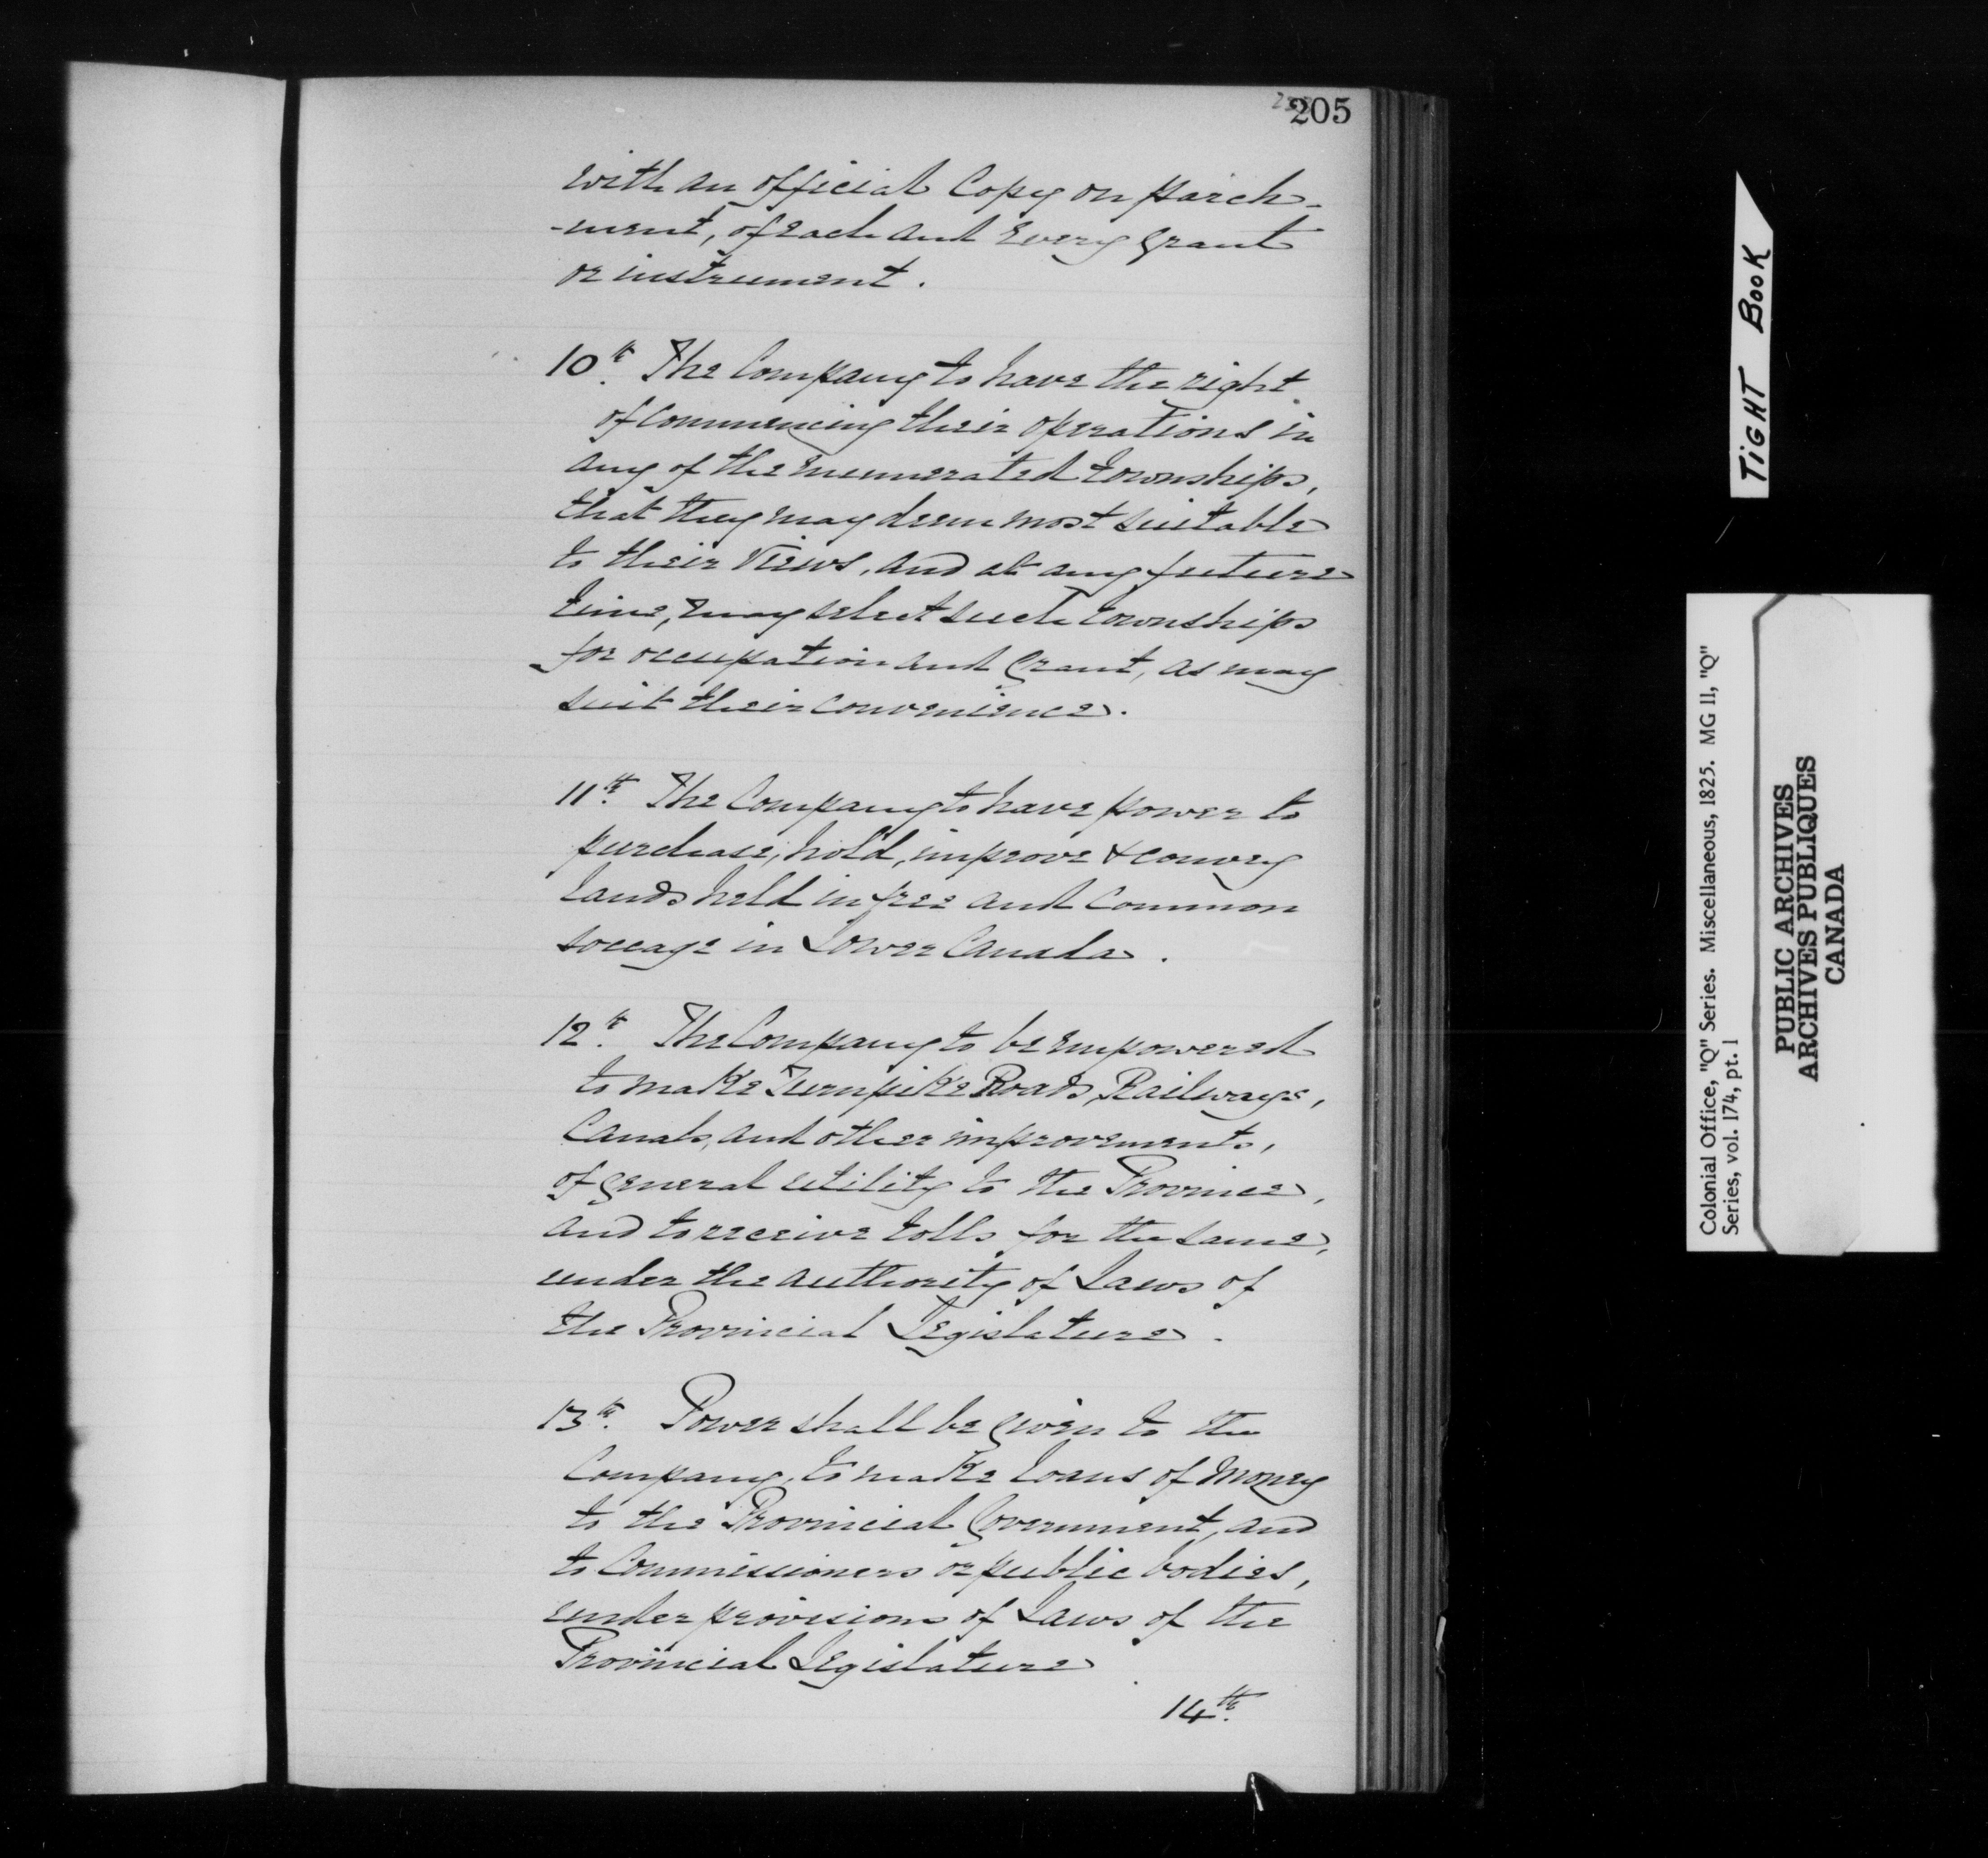 205
with an official Copy on parch-
-ment, of each and every grant
or instrument.
10th. The Company to have the right
of commencing their operations in
any of the enumerated townships,
that they may deem most suitable
to their views, and at any future
time, may select such townships
for occupation and Grant, as may
suit their convenience.
11th. The Company to have power to
purchase, hold, improve & convey
lands held in free and common
soccage in Lower Canada.
12th. The Company to be empowered
to make Turnpike Roads, Railways,
Canals, and other improvements,
of general utility to the Province,
and to receive tolls for the same,
under the authority of Laws of
the Provincial Legislature.
13th. Power shall be given to the
Company, to make loans of money
to the Provincial Government, and
to Commissioners or public bodies,
under provisions of Laws of the
Provincial Legislature.
14th.
TIGHT BOOK
Colonial Office, "Q" Series. Miscellaneous, 1825. MG 11, "Q"
Series, vol. 174, pt. 1
PUBLIC ARCHIVES
ARCHIVES PUBLIQUES
CANADA